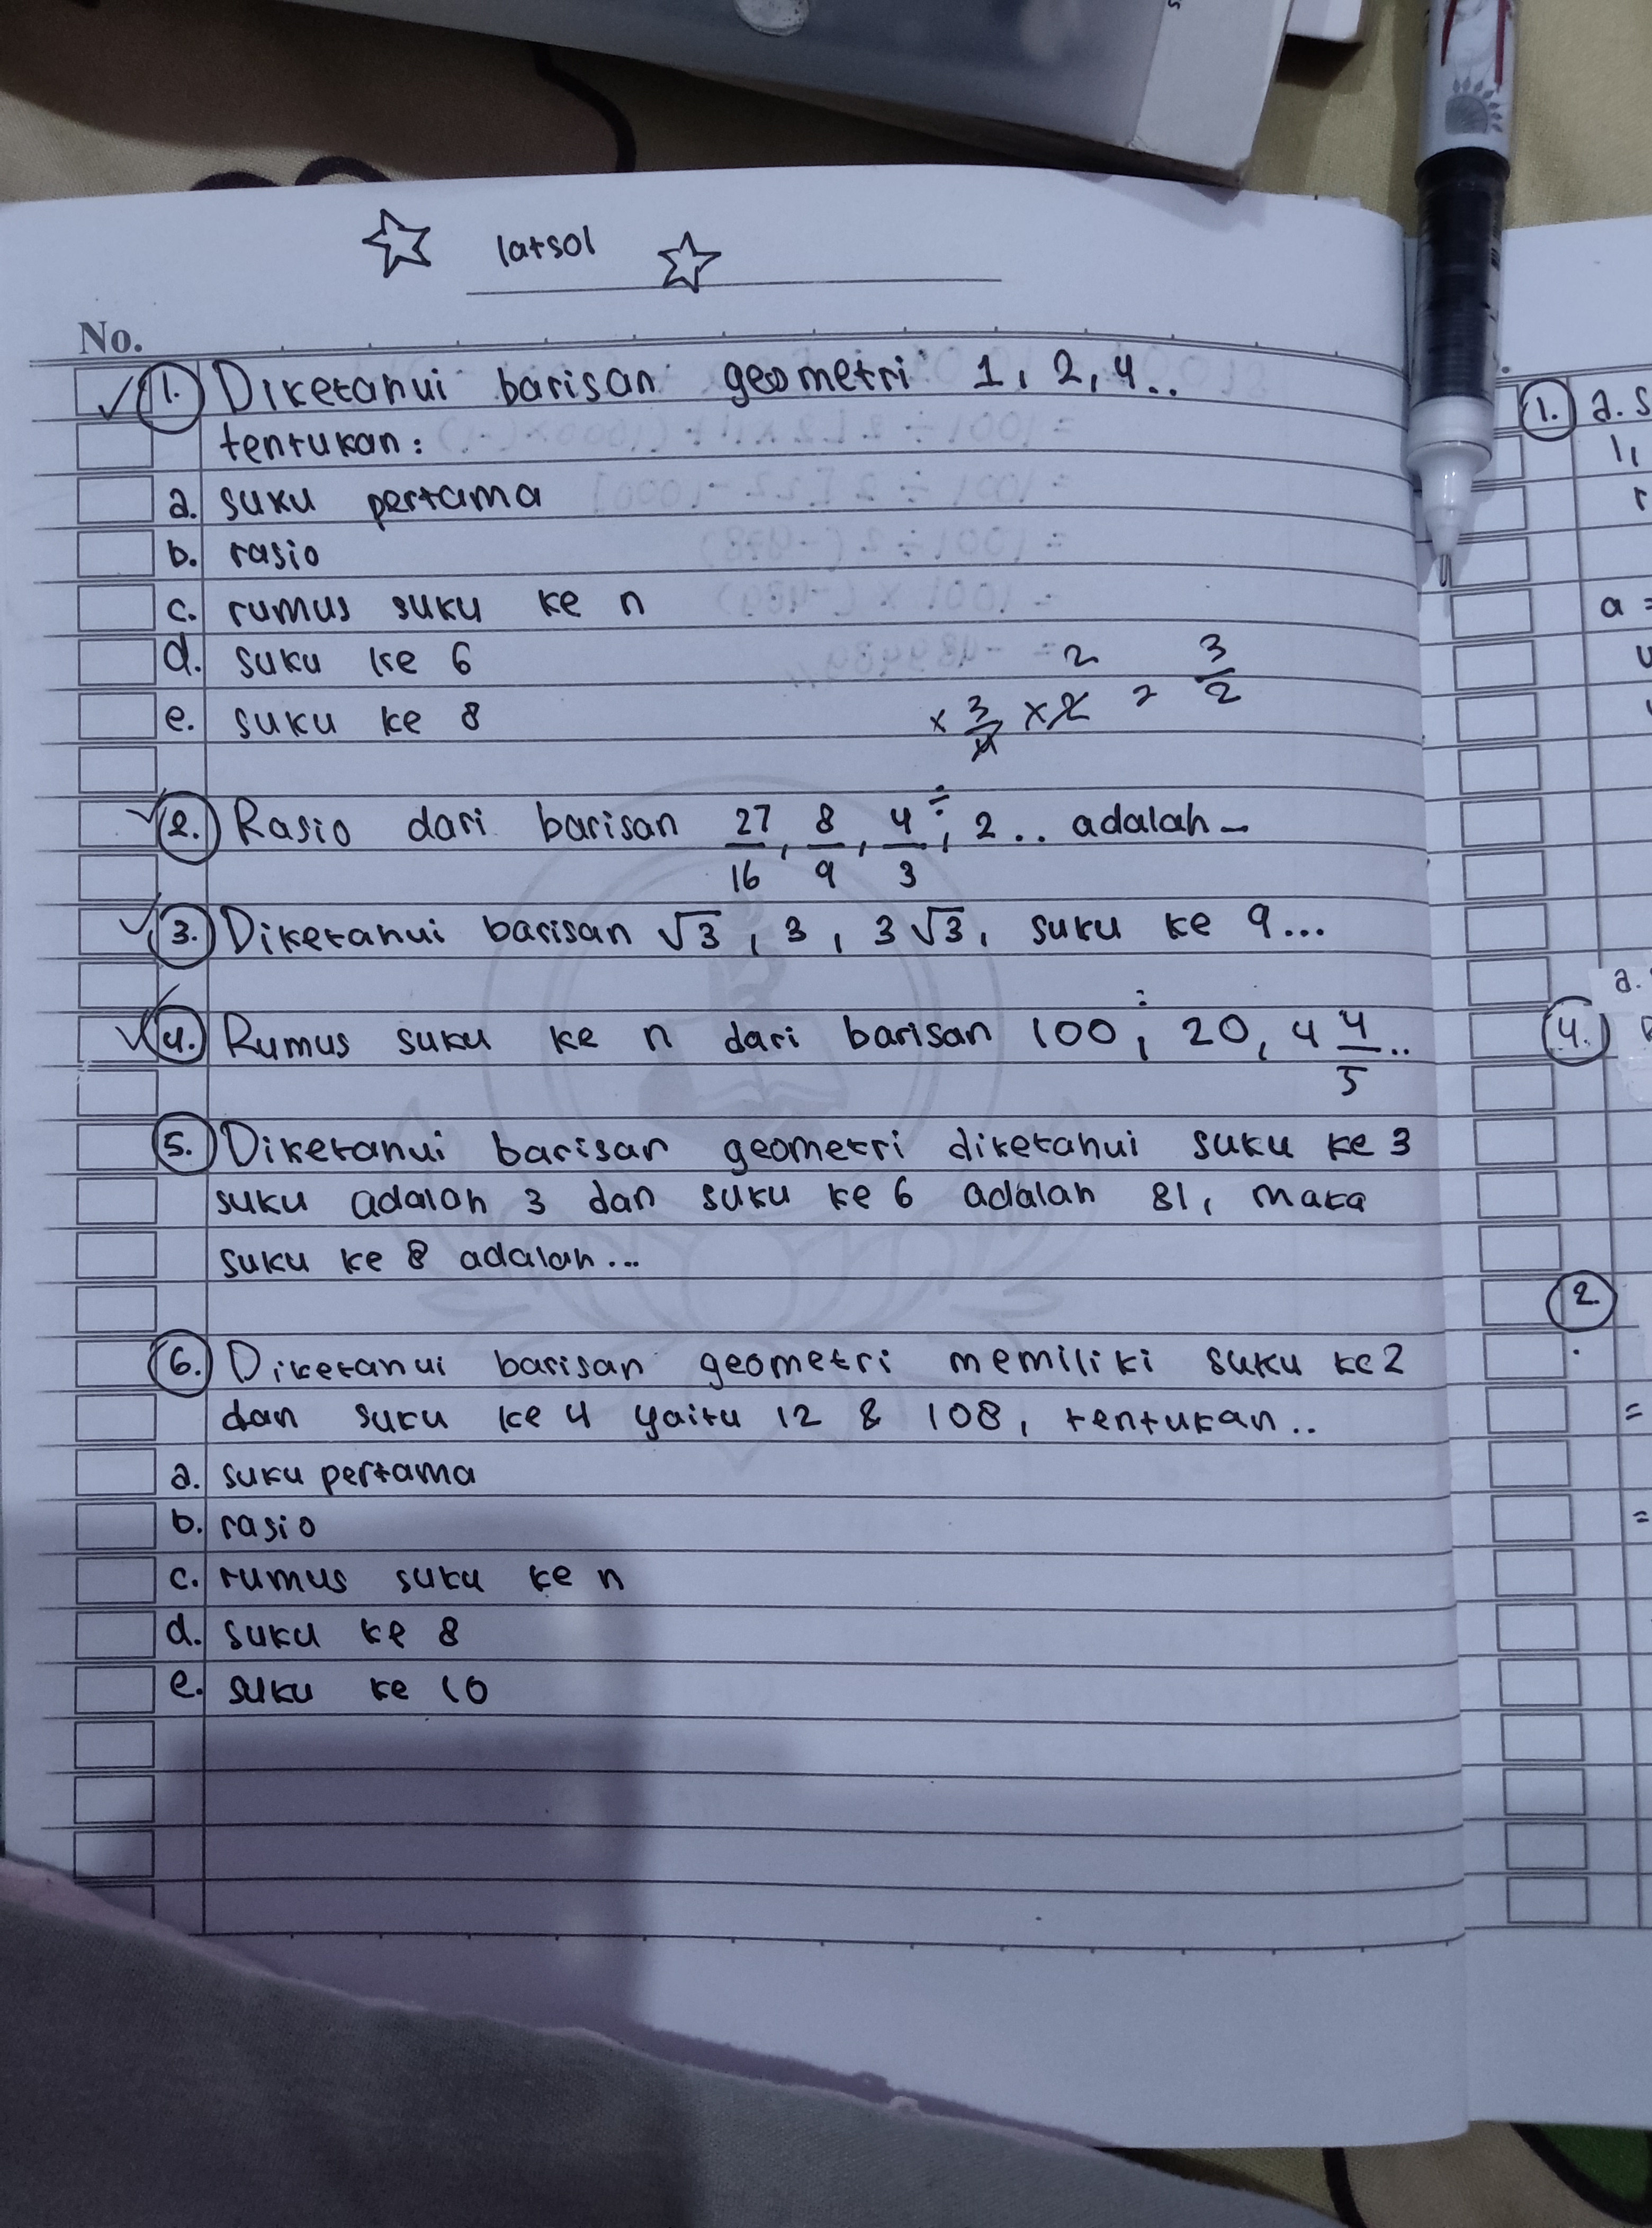 latsol
No.
1. Diketahui barisan geometri 1, 2, 4..
tentukan:
a. suku pertama
b. rasio
c. rumus suku ke n
d. suku ke 6
e. suku ke 8
2 3/2
× 3/4 × 2 =
2. Rasio dari barisan 27/16, 8/9, 4/3 ÷, 2.. adalah -
3. Diketahui barisan √3, 3, 3√3, suku ke 9...
4. Rumus suku ke n dari barisan 100, 20, 4 4/5..
5. Diketahui barisan geometri diketahui suku ke 3
suku adalah 3 dan suku ke 6 adalah 81, maka
suku ke 8 adalah...
6. Diketahui barisan geometri memiliki suku ke 2
dan suku ke 4 yaitu 12 & 108, tentukan..
a. suku pertama
b. rasio
c. rumus suku ke n
d. suku ke 8
e. suku ke 10
1. a. s
a =
a.
4.
2
=
=